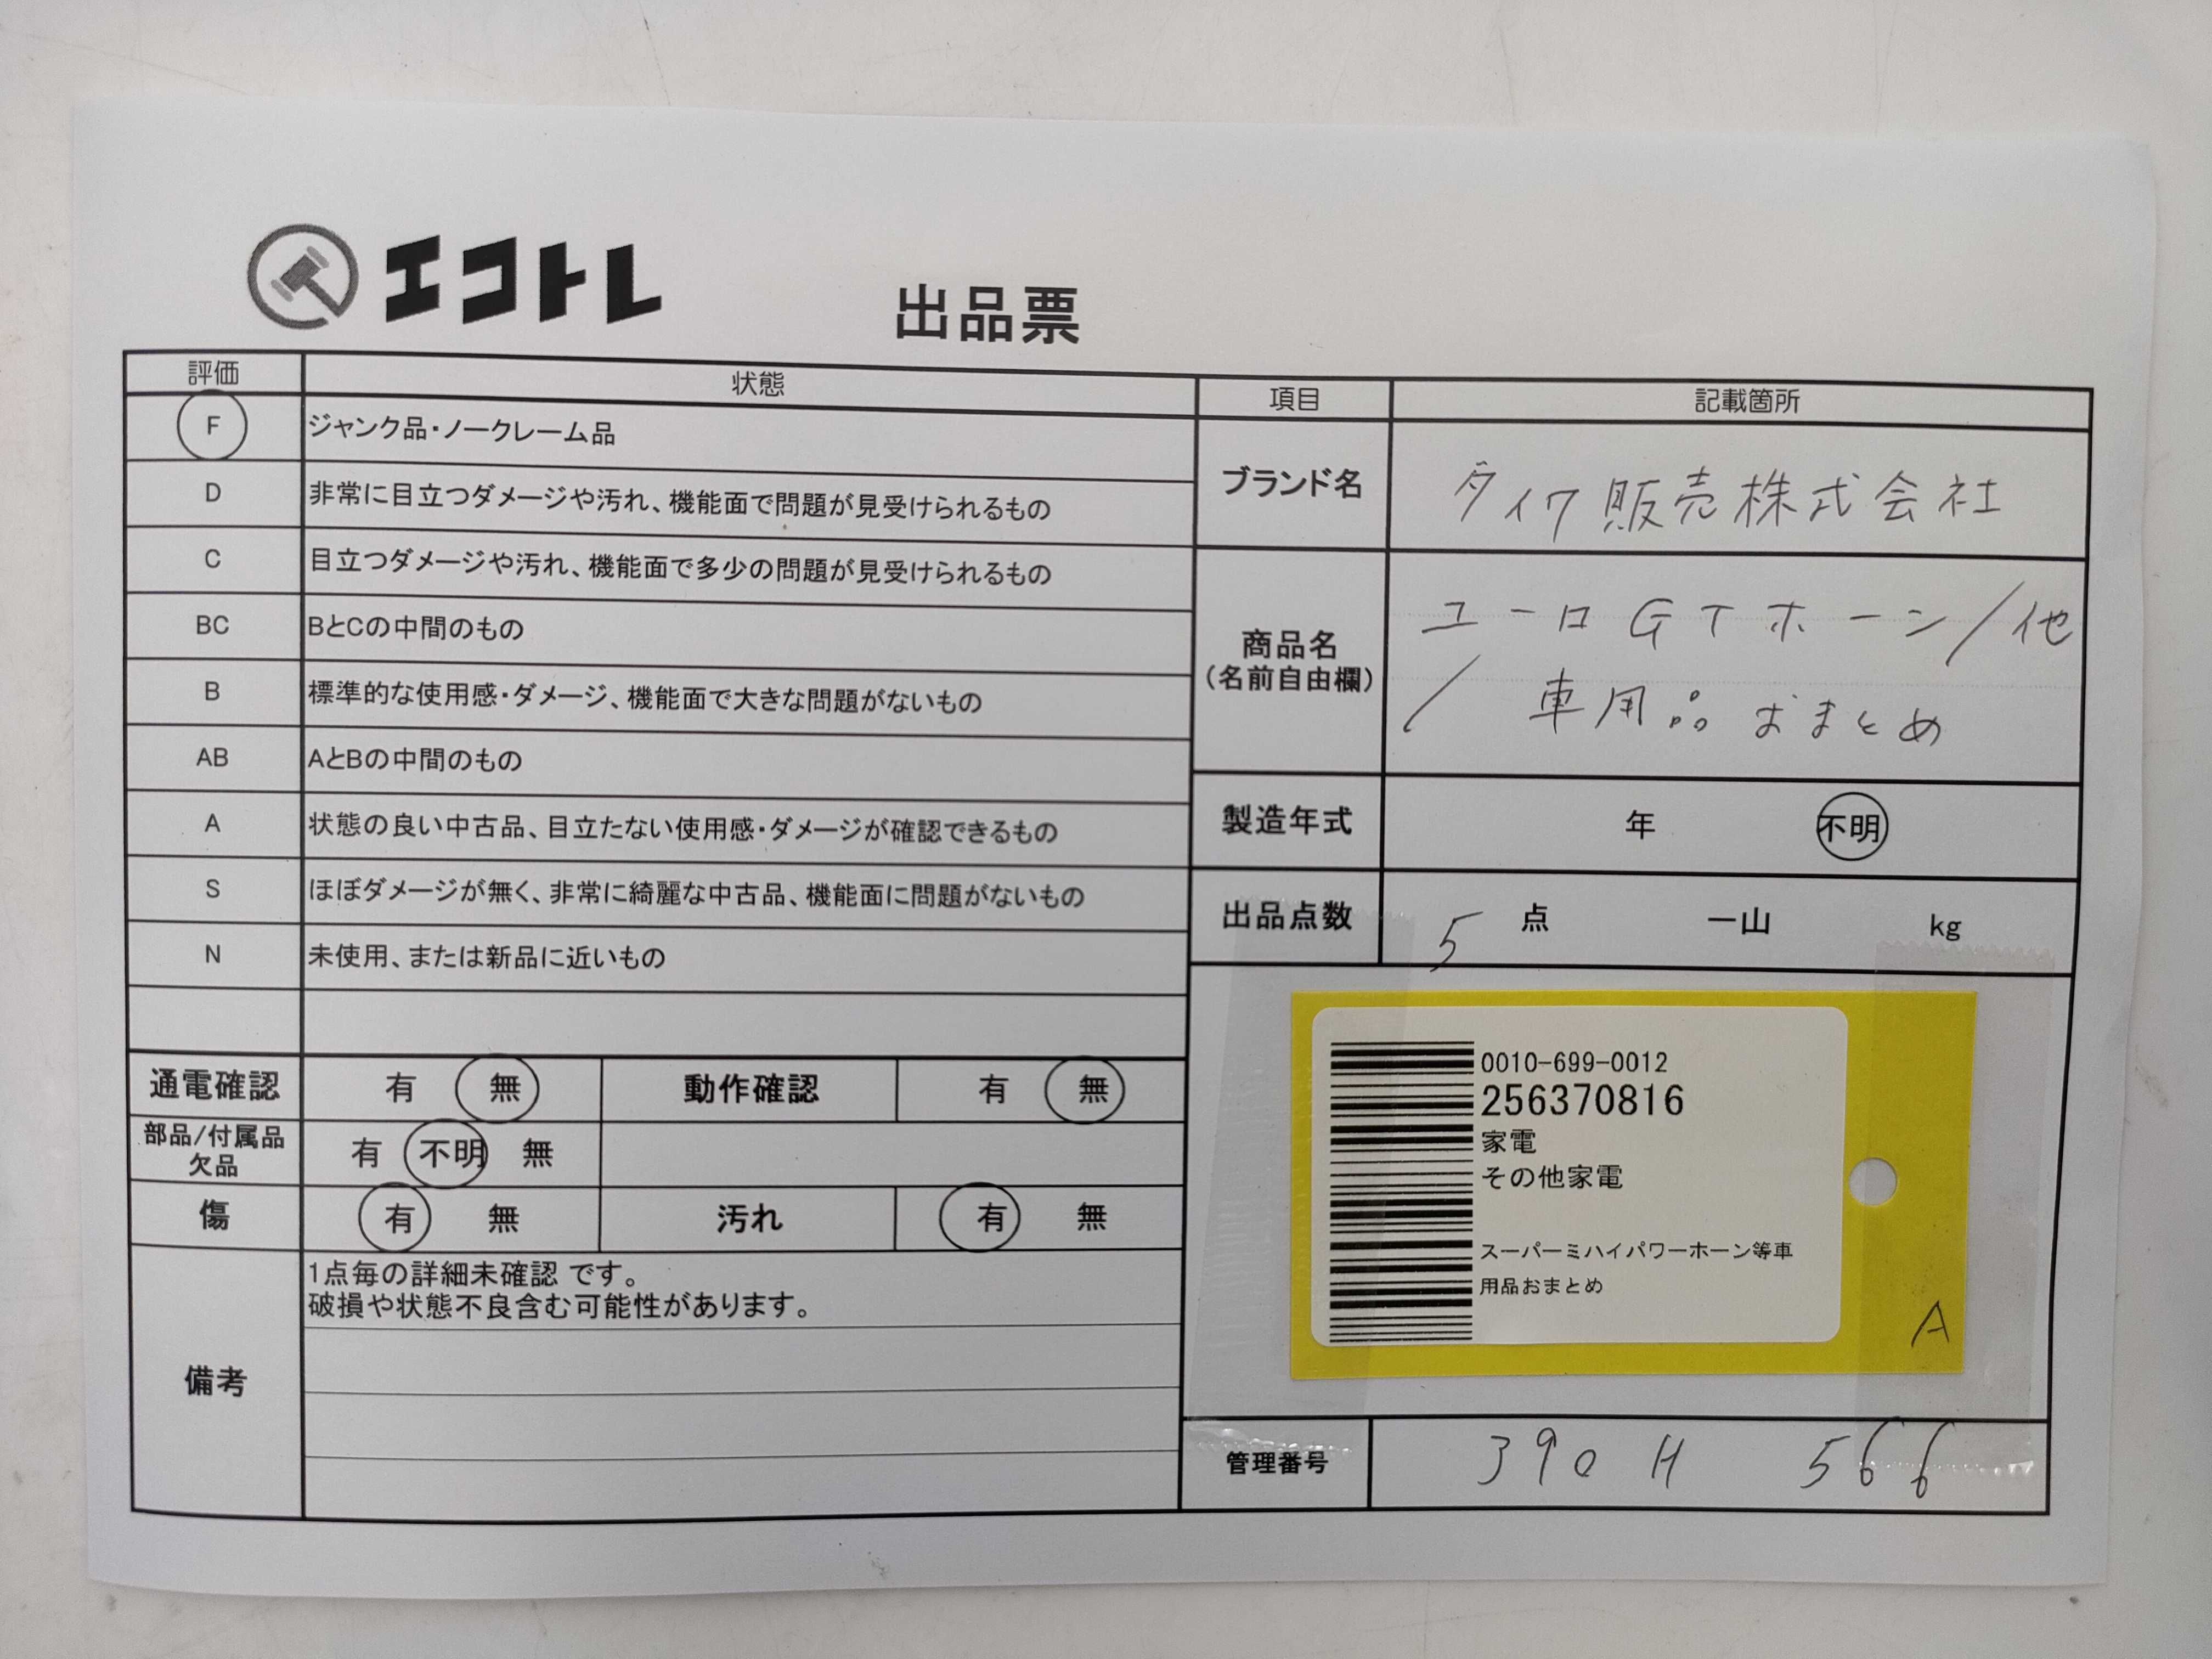 エコトレ
出品票
評価 状態
F ジャンク品・ノークレーム品
D 非常に目立つダメージや汚れ、機能面で問題が見受けられるもの
C 目立つダメージや汚れ、機能面で多少の問題が見受けられるもの
BC BとCの中間のもの
B 標準的な使用感・ダメージ、機能面で大きな問題がないもの
AB AとBの中間のもの
A 状態の良い中古品、目立たない使用感・ダメージが確認できるもの
S ほぼダメージが無く、非常に綺麗な中古品、機能面に問題がないもの
N 未使用、または新品に近いもの
通電確認 有 無 動作確認 有 無
部品/付属品
欠品 有 不明 無
傷 有 無 汚れ 有 無
備考
1点毎の詳細未確認 です。
破損や状態不良含む可能性があります。
項目 記載箇所
ブランド名 ダイワ販売株式会社
商品名
(名前自由欄)
ユーロGTホーン/他
/ 車用品おまとめ
製造年式 年 不明
出品点数 5 点 一山 kg
0010-699-0012
256370816
家電
その他家電
スーパーミハイパワーホーン等車
用品おまとめ
A
管理番号 390H 566